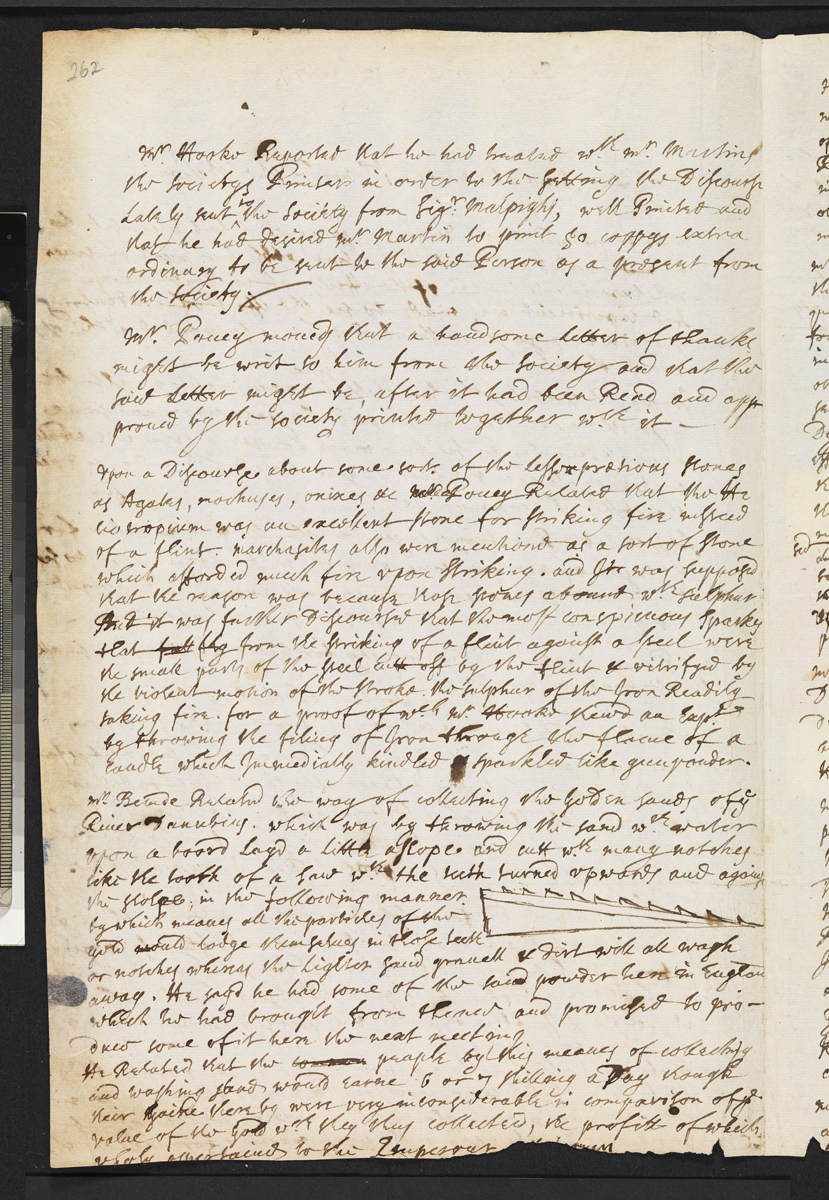 262
Mr. Hooke Reported that he had treated wth. mr. Martine
the Societys Printer in order to the getting the Discourse
Lately sent to the Society from Sigr. Malpighi, well Printed and
that he had desired mr. Martin to print 50 coppys extra
ordinary to be sent to the said Person as a present from
the Society.
Mr. Povey moved that a handsome letter of thanks
might be writ to him from the Society and that the
said Letter might be, after it had been Read and app
proued by the Society printed together wth. it
Vpon a Discourse about some sorts of the Lesse pretious stones
as Agates, onixes &c Povey Related that the He
liotropium was an excellent stone for striking fire insteed
of a flint. marchasites also were mentiond as a sort of stone
which afforded much fire vpon striking. and It was supposed
that the reason was because those stones abound wth. sulphur
And it was further Discoursed that the most conspicuous sparks
that from the striking of a flint against a steel were
the small parts of the steel cutt off by the flint & vitrifyd by
the violent motion of the stroke the sulphur of the Iron Readily
taking fire. for a proof of wch mr. Hooke shewd an Expt
by throwing the filing of Iron through the flame of a
candle which Immediatly kindled & sparkled like gunpouder.
mr. Related the way of collecting the Golden sands of ye
River Danubius. which was by throwing the sand wth. water
vpon a board Layd a little aslope and cutt wth. many notches
like the tooth of a saw wth. the teeth turned vpwards and against
the slope, in the following manner.
by which means all the particles of the
gold would lodge themselues in those teeth
or notches whereas the Lighter sand gravell & dirt will all wash
away. He sayd he had some of the said powder here in England
which he had brought from thence and promised to pro-
duce some of it here the next meeting
He Related that the common people by this means of collecting
and washing sand would earne 6 or 7 shilling a Day though
their gaine thereby were very inconsiderable in comparison of ye
value of the Gold wch they thus collected, the profitt of which
wholy appertained to the Emperour